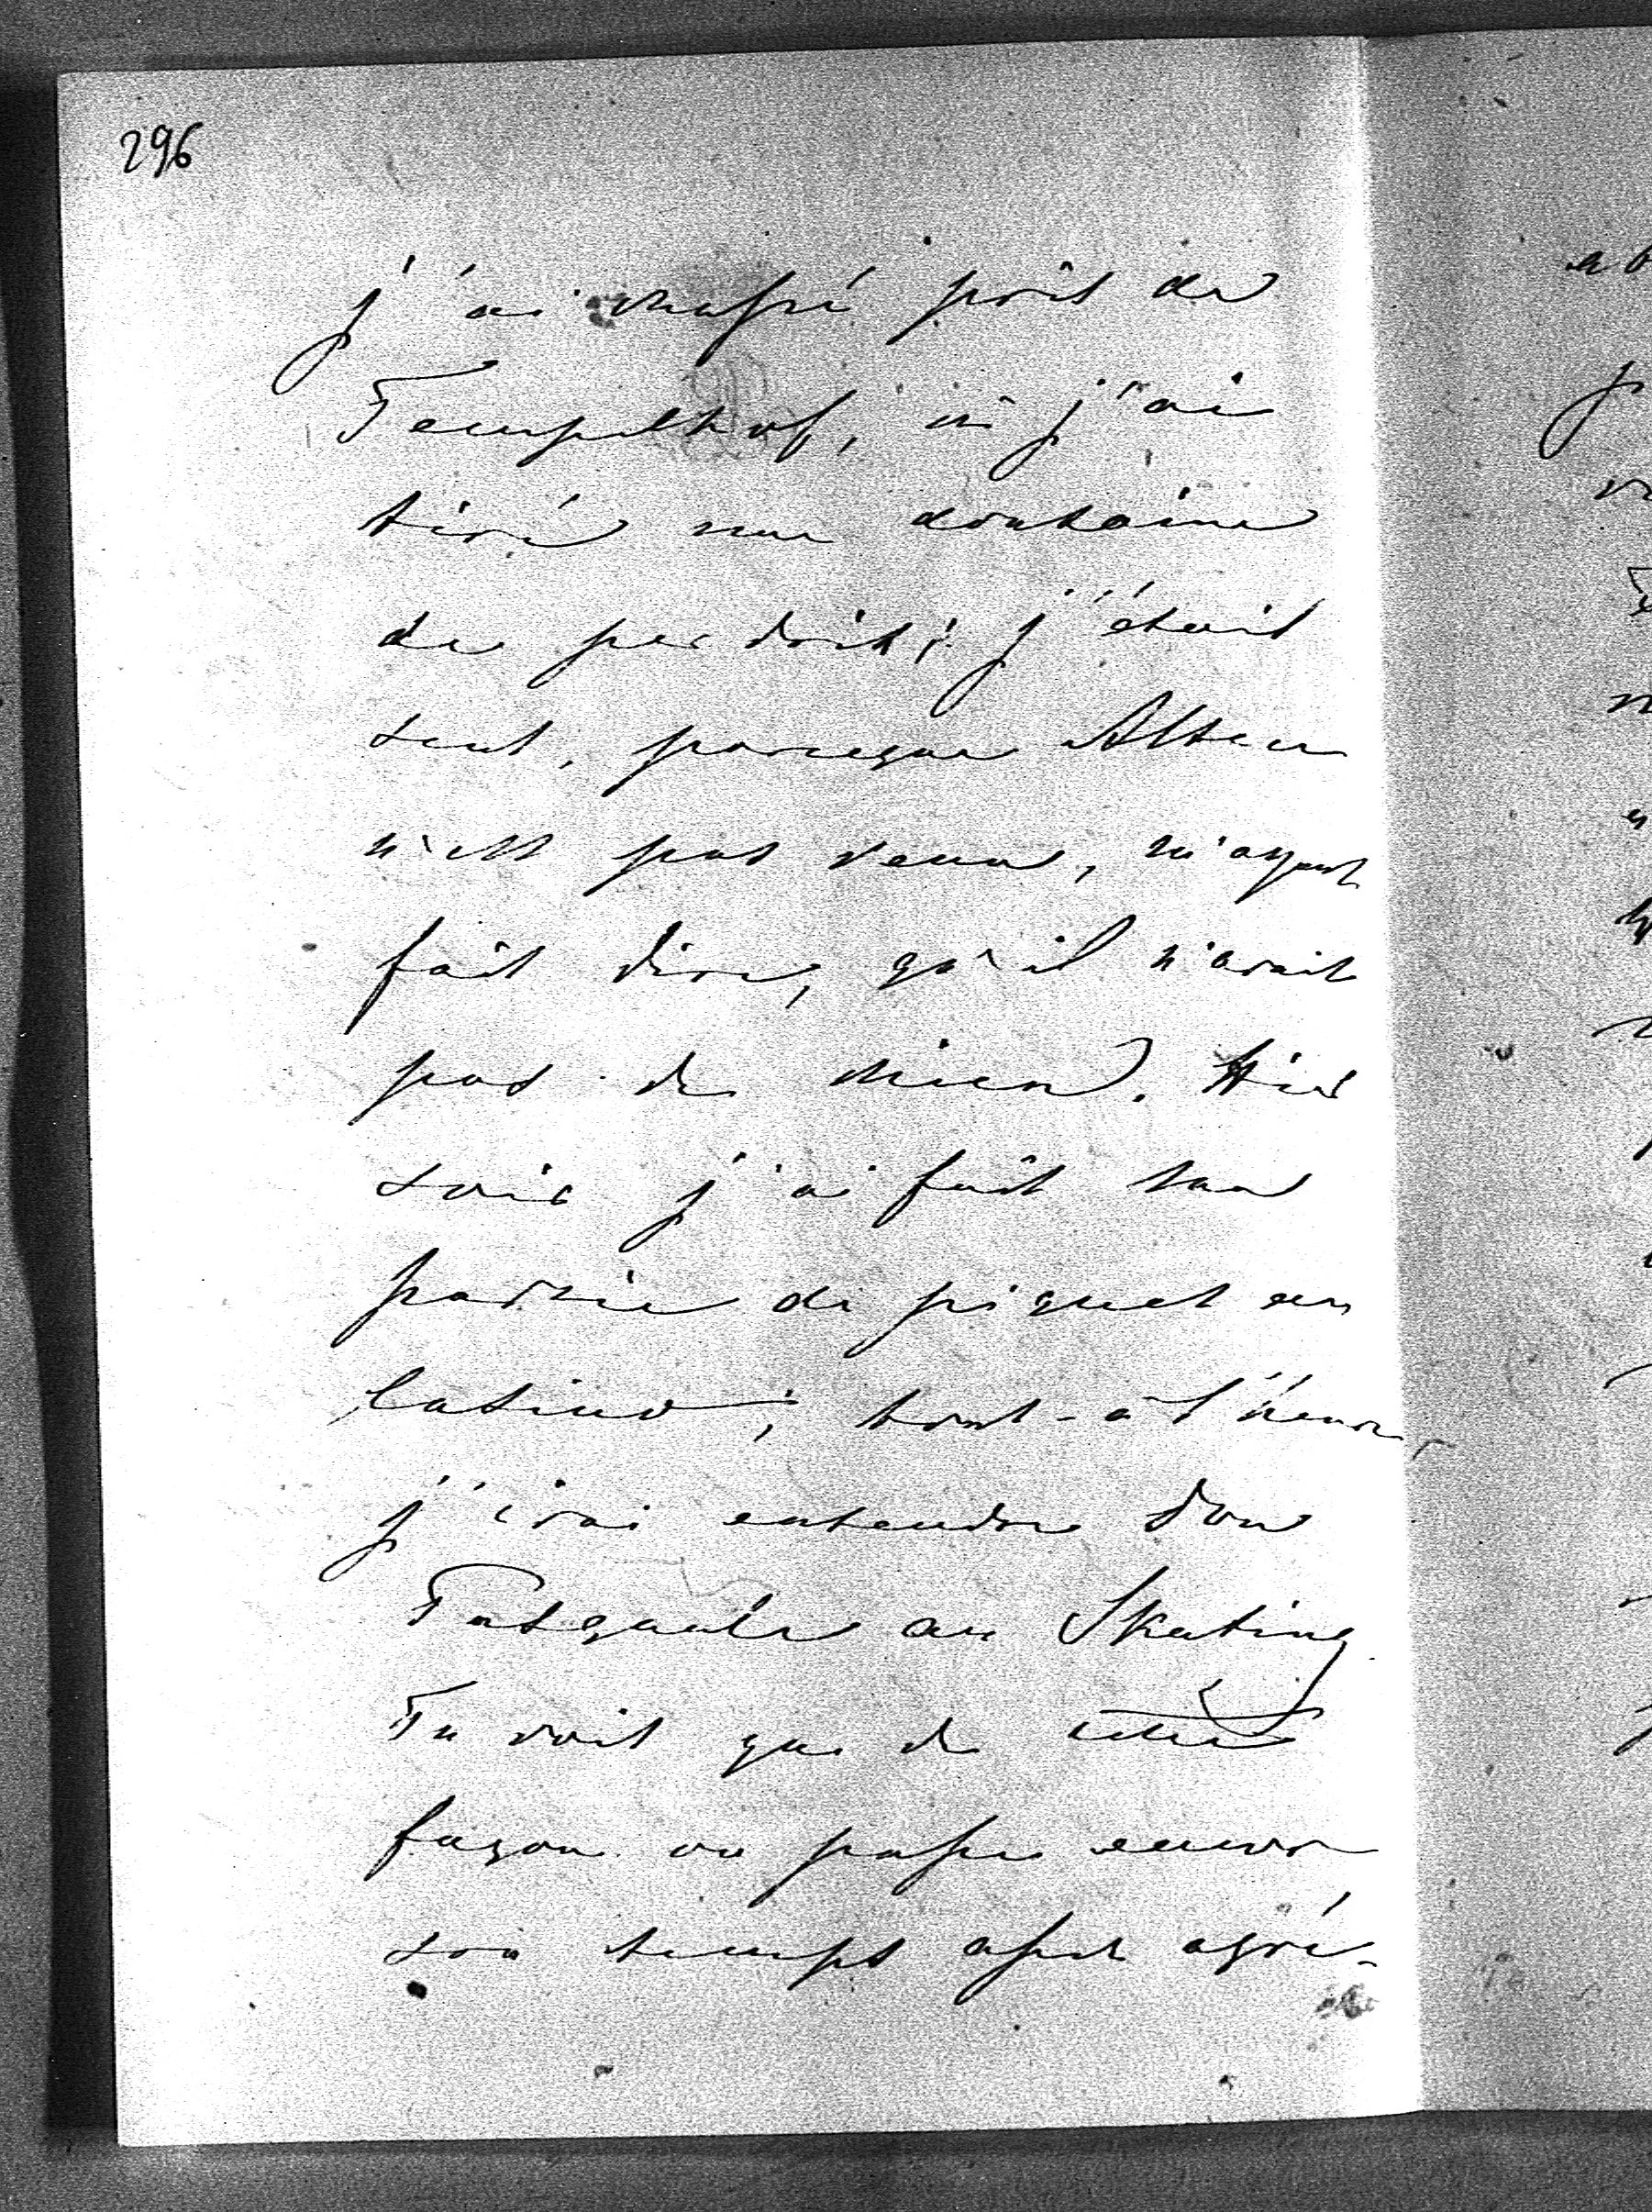 296
j'ai chassé près de
Tempelhof, où j'ai
tiré une douzaine
de perdrix; j'étais
seul, parceque Alten
n'est pas venu, m'ayant
fait dire, qu'il n'avait
pas de chien. Hier
soir j'ai fait ma
partie de piquet au
Casino; tout-à-l'heure
j'irai entendre Don
Pasquale au Skating
Tu vois que de cette
façon on passe encore
son temps assez agré-